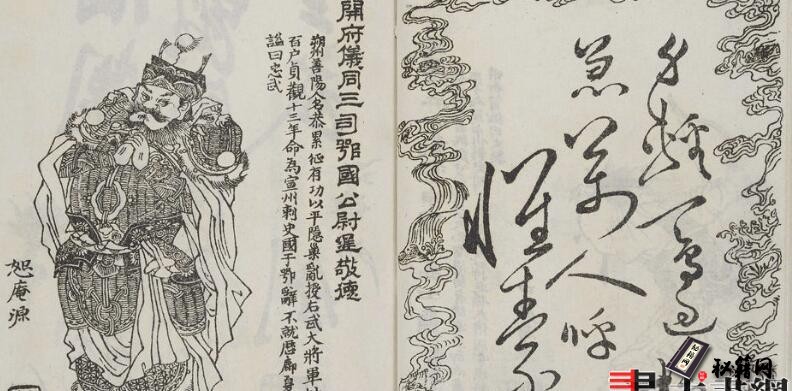 身輕一鳥過
急萬人呼
開府儀同三司鄂國公尉遲敬德
朔州善陽人名恭累征有功以平隱巢亂授右武大將軍
百户貞觀十三年命為宣州刺史國于鄂辭不就歷鄜
諡曰忠武
恕庵源
秘籍网